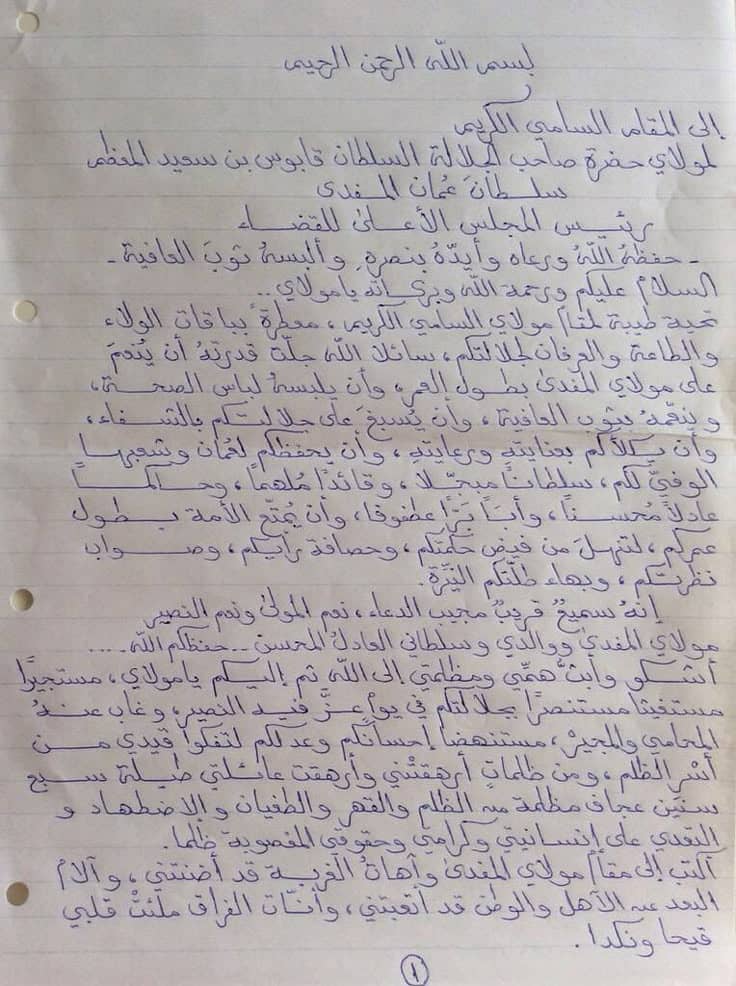 بسم الله الرحمن الرحيم
إلى المقام السامي الكريم
لمولاي حضرة صاحب الجلالة السلطان قابوس بن سعيد المعظم
سلطان عُمان المفدى
رئيس المجلس الأعلى للقضاء
- حفظهُ اللهُ ورعاه وأيدّهُ بنصرهِ وألبسهُ ثوبَ العافية -
السلامُ عليكم ورحمة الله وبركاته يا مولاي..
تحية طيبة لمقام مولاي السامي الكريم، معطرةً بباقات الولاء
والطاعة والعرفان لجلالتكم، سائلا الله جلّة قدرتهُ أن يُنعمَ
على مولاي المفدى بطول العمر، وأن يلبسهُ لباس الصحة،
وينعّمهُ بثوب العافية، وأن يُسبغَ على جلالتكم بالشفاء،
وأن يكلأكم بعنايتهِ ورعايتهِ، وأن يحفظكم لعُمان وشعبها
الوفيّ لكم، سلطاناً مبجّلا، وقائدًا مُلهمًا، وحاكمـــــاً
عادلاً مُحسنـــاً، وأبَاً بَرَّاً عطوفا، وأن يُمتّع الأمة بـطــول
عمركم، لتنهلَ من فيض حكمتكم، وحصافة رأيكم، وصــواب
نظرتكم، وبهاء طلّتكم النيّرة.
إنهُ سميعٌ قريبٌ مجيب الدعاء، نعم المولى ونعم النصير
مولاي المفدى ووالدي وسلطاني العادلُ المحسن .. حفظكم الله....
أشكو وأبثُّ همّي ومظلمتي إلى الله ثم إليكم يامولاي، مستجيرًا
مستغيثا مستنصرًا بجلالتكم في يومٍ عزَّ فيه النصير، وغاب عنـهُ
المحامي والمجيرُ، مستنهضا إحسانكم وعدلكم لتفكوا قيدي مــن
أسْر الظلم، ومن ظلماتٍ أرهقتْني وأرهقت عائلتي طيلة سبع
سنين عجاف مظلمة من الظلم والقهر والطغيان والإضطهاد و
التعدي على إنسانيتي وكرامتي وحقوقي المغصوبة ظلما.
أكتب إلى مقام مولاي المفدى وآهاتُ الغربة قد أضنتني، وآلامُ
البعد عن الأهل والوطن قد أتعبتني، وأنّات الفراق ملئتْ قلبي
قيحا ونكدا.
١